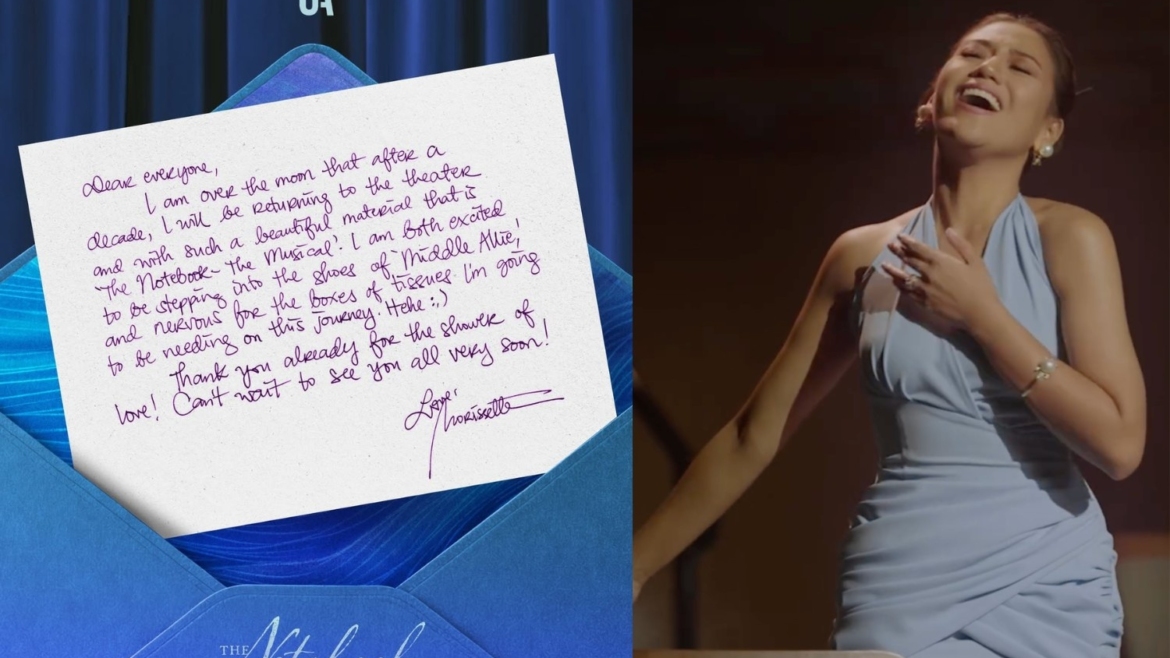 Dear everyone,
I am over the moon that after a
decade, I will be returning to the theater
and with such a beautiful material that is
"The Notebook - The Musical". I am both excited
to be stepping into the shoes of 'Middle Allie,'
and nervous for the boxes of tissues I'm going
to be needing on this journey. Hehe :,)
Thank you already for the shower of
love! Can't wait to see you all very soon!
Love, Morissette
THE Notebook